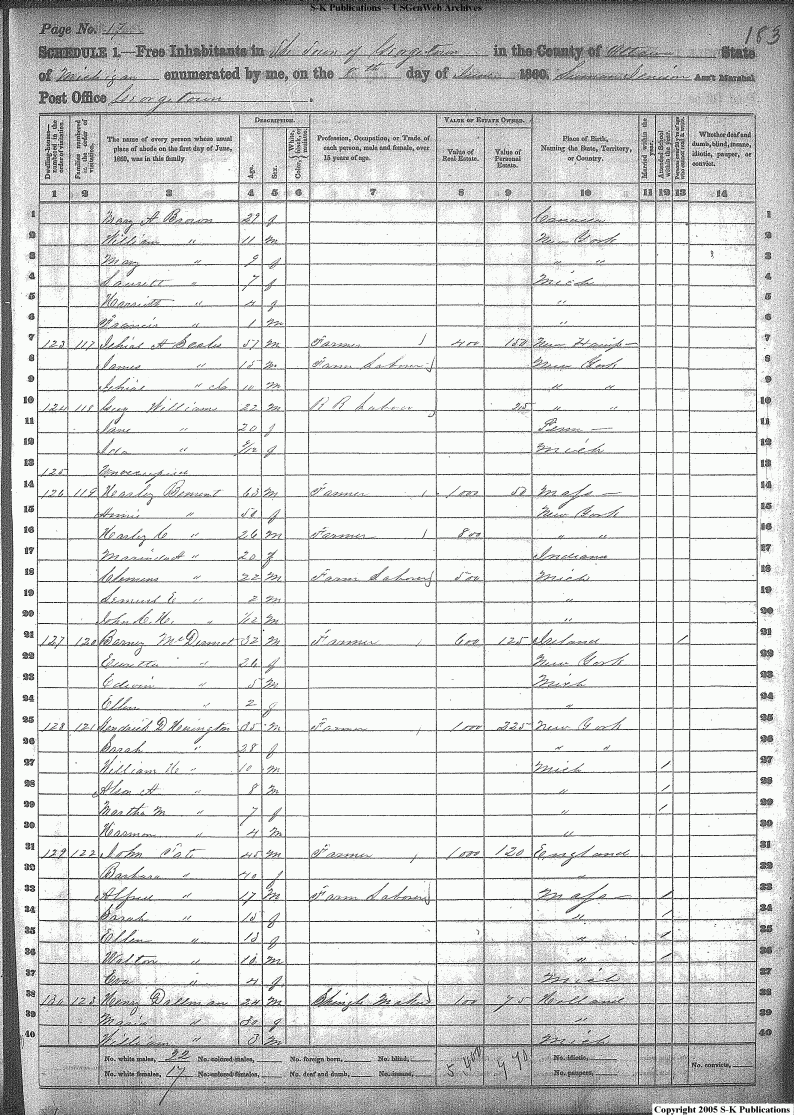 S-K Publications – USGenWeb Archives
Page No. 17
183
SCHEDULE 1.—Free Inhabitants in The Town of Georgetown in the County of Ottawa State
of Michigan enumerated by me, on the day of June 1860. Ass't Marshal
Post Office Georgetown.
DESCRIPTION. VALUE OF ESTATE OWNED.
Dwelling-houses—numbered in the order of visitation.
Families numbered in the order of visitation.
The name of every person whose usual place of abode on the first day of June, 1860, was in this family.
Age. Sex. Color, White, black, or mulatto.
Profession, Occupation, or Trade of each person, male and female, over 15 years of age.
Value of Real Estate.
Value of Personal Estate.
Place of Birth, Naming the State, Territory, or Country.
Married within the year.
Attended School within the year.
Whether deaf and dumb, blind, insane, idiotic, pauper, or convict.
1 2 3 4 5 6 7 8 9 10 11 12 13 14
1 Mary A Brown 29 f Canada 1
2 William " 11 m New York 2
3 Mary " 9 f " " 3
4 " 7 f Mich 4
5 Harriett " 4 f " 5
6 Francis " 1 m " 6
7 123 117 57 M Farmer 400 150 New Hamp— 7
8 James " 15 m Farm Laborer New York 8
9 " 10 m " " 9
10 124 118 Williams 22 m R R Labor 25 " " 10
11 Jane " 20 f Penn— 11
12 Ida " 9/12 f Mich 12
13 125 Unoccupied 13
14 126 119 Harley Bement 63 m Farmer 1000 50 Mass— 14
15 " 50 f New York 15
16 Harley C " 26 m Farmer 800 " " 16
17 " 20 f Indiana 17
18 Clemens " 22 m Farm Laborer 500 Mich 18
19 Lemuel E " 2 m " 19
20 John " m " 20
21 127 120 Barney McDermot 32 m Farmer 600 125 Ireland 1 21
22 " 26 f New York 22
23 Edwin " 5 m Mich 23
24 Ellen " 2 f " 24
25 128 121 35 m Farmer 1000 225 New York 25
26 Sarah " 28 f " " 26
27 William H " 10 m Mich 1 27
28 A " 8 m " 1 28
29 Martha M " 7 f " 1 29
30 Harmon " 4 m " 30
31 129 122 John 45 m Farmer 1000 120 England 31
32 Barbara " 40 f " 32
33 Alfred " 17 m Farm Laborer Mass— 1 33
34 Sarah " 15 f " 1 34
35 Ellen " 13 f " 1 35
36 Walton " 10 m " 1 36
37 Eva " 4 f Mich 37
38 130 123 Henry Dallman 24 m Shingle Maker 100 75 Holland 38
39 Maria " 30 f " 39
40 William " 3 m Mich 40
No. white males, 22 No. colored males, No. foreign born, No. blind, 5,400 970 No. idiotic, No. convicts,
No. white females, 17 No. colored females, No. deaf and dumb, No. insane, No. paupers,
Copyright 2005 S-K Publications